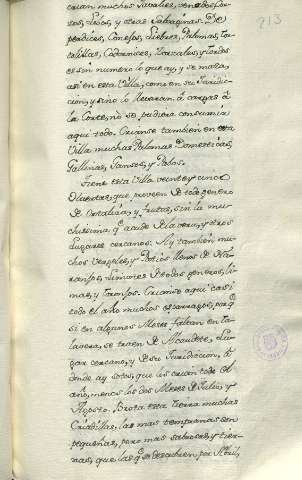 213
crian muchos Javalíes, venados, Cor-
zos, Lobos, y otras Salvaginas. De
perdices, Conejos, Liebres, Palomas, Tor-
tolillas, Codornices, Zorzales, y tordos
es sin numero lo que ay, y se mata,
así en esta Villa, como en su Juridic-
cion, y si no lo llevaran à cargas à
la Corte, no se pudiera consumir
aqui todo. Crianse también en esta
Villa muchas Palomas Domesticas,
Gallinas, Gansos, y Patos.
Tiene esta Villa veinte y cinco
Huertas, que proveen de todo genero
de Ortaliza, y frutas, sin la mu-
chissima q.e acude de la vera, y otros
Lugares cercanos. Ay también mu-
chos vergeles, y Patios llenos de Na-
ranjos, Limones de todos generos, li-
mas, y Toronjos. Crianse aqui casi
todo el año muchos esparragos, por q.e
si en algunos Meses faltan en Ta-
lavera, se traen de Alcaudete, Lu-
gar cercano, y de su Juridicion, de
donde ay sotos, que los crian todo el
año, menos los dos Meses de Julio, y
Agosto. Brota esta tierra muchas
Criadillas, las mas tempranas son
pequeñas, pero mas sabrosas, y tier-
nas, que las q.e se descubren por Abril,